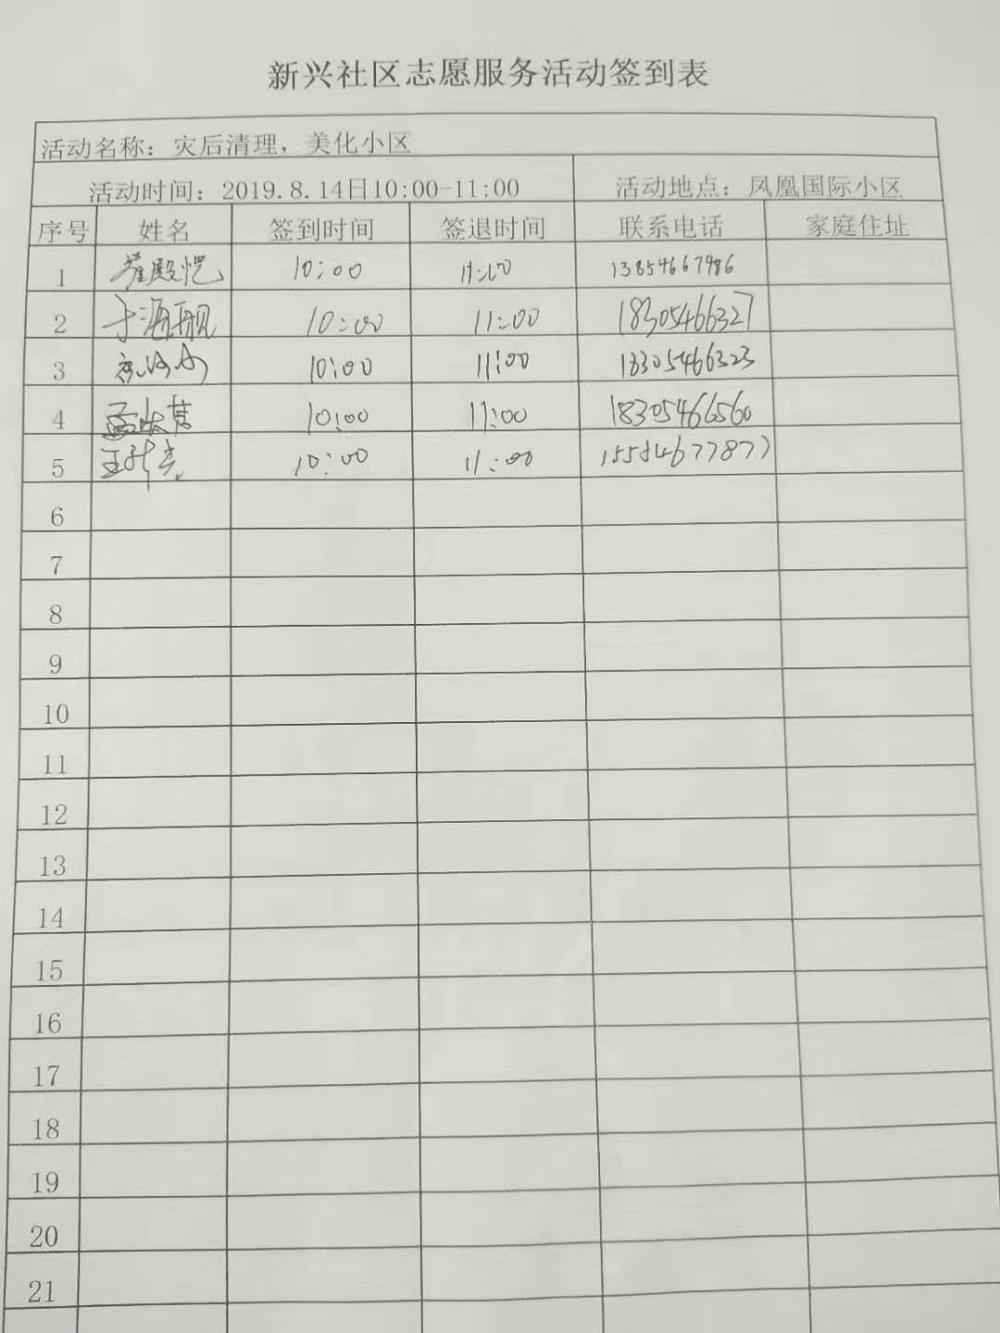 新兴社区志愿服务活动签到表
活动名称：灾后清理，美化小区
活动时间：2019.8.14日10:00-11:00 活动地点：凤凰国际小区
序号 姓名 签到时间 签退时间 联系电话 家庭住址
1 崔殿恺 10:00 11:00 13854667986
2 于海舰 10:00 11:00 18305466327
3 10:00 11:00 18305466323
4 孟 10:00 11:00 18305466560
5 王 10:00 11:00 15554677877
6
7
8
9
10
11
12
13
14
15
16
17
18
19
20
21